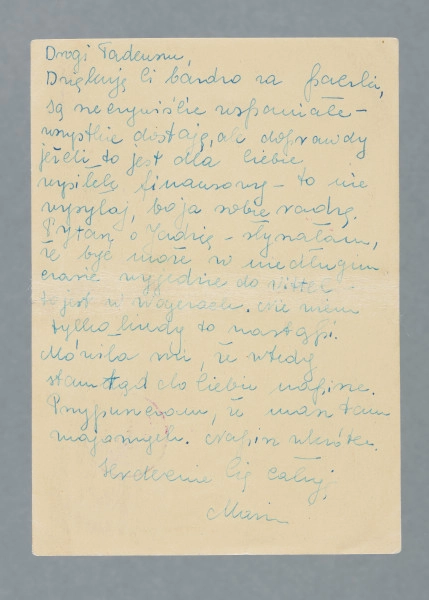 Drogi Tadeuszu,
Dziękuję Ci bardzo za paczki,
są rzeczywiście wspaniałe -
wszystkie dostaję, ale doprawdy
jeżeli to jest dla Ciebie
wysiłek finansowy - to nie
wysyłaj, bo ja sobie radzę.
Pytasz o Jadzię - słyszałam,
że być może w niedługim
czasie wyjedzie do Vittel -
to jest w Wogezach. Nie wiem
tylko kiedy to nastąpi.
Mówiła mi, że wtedy
stamtąd do Ciebie napisze.
Przypuszczam, że masz tam
znajomych. Napisz wkrótce.
Serdecznie Cię całuję,